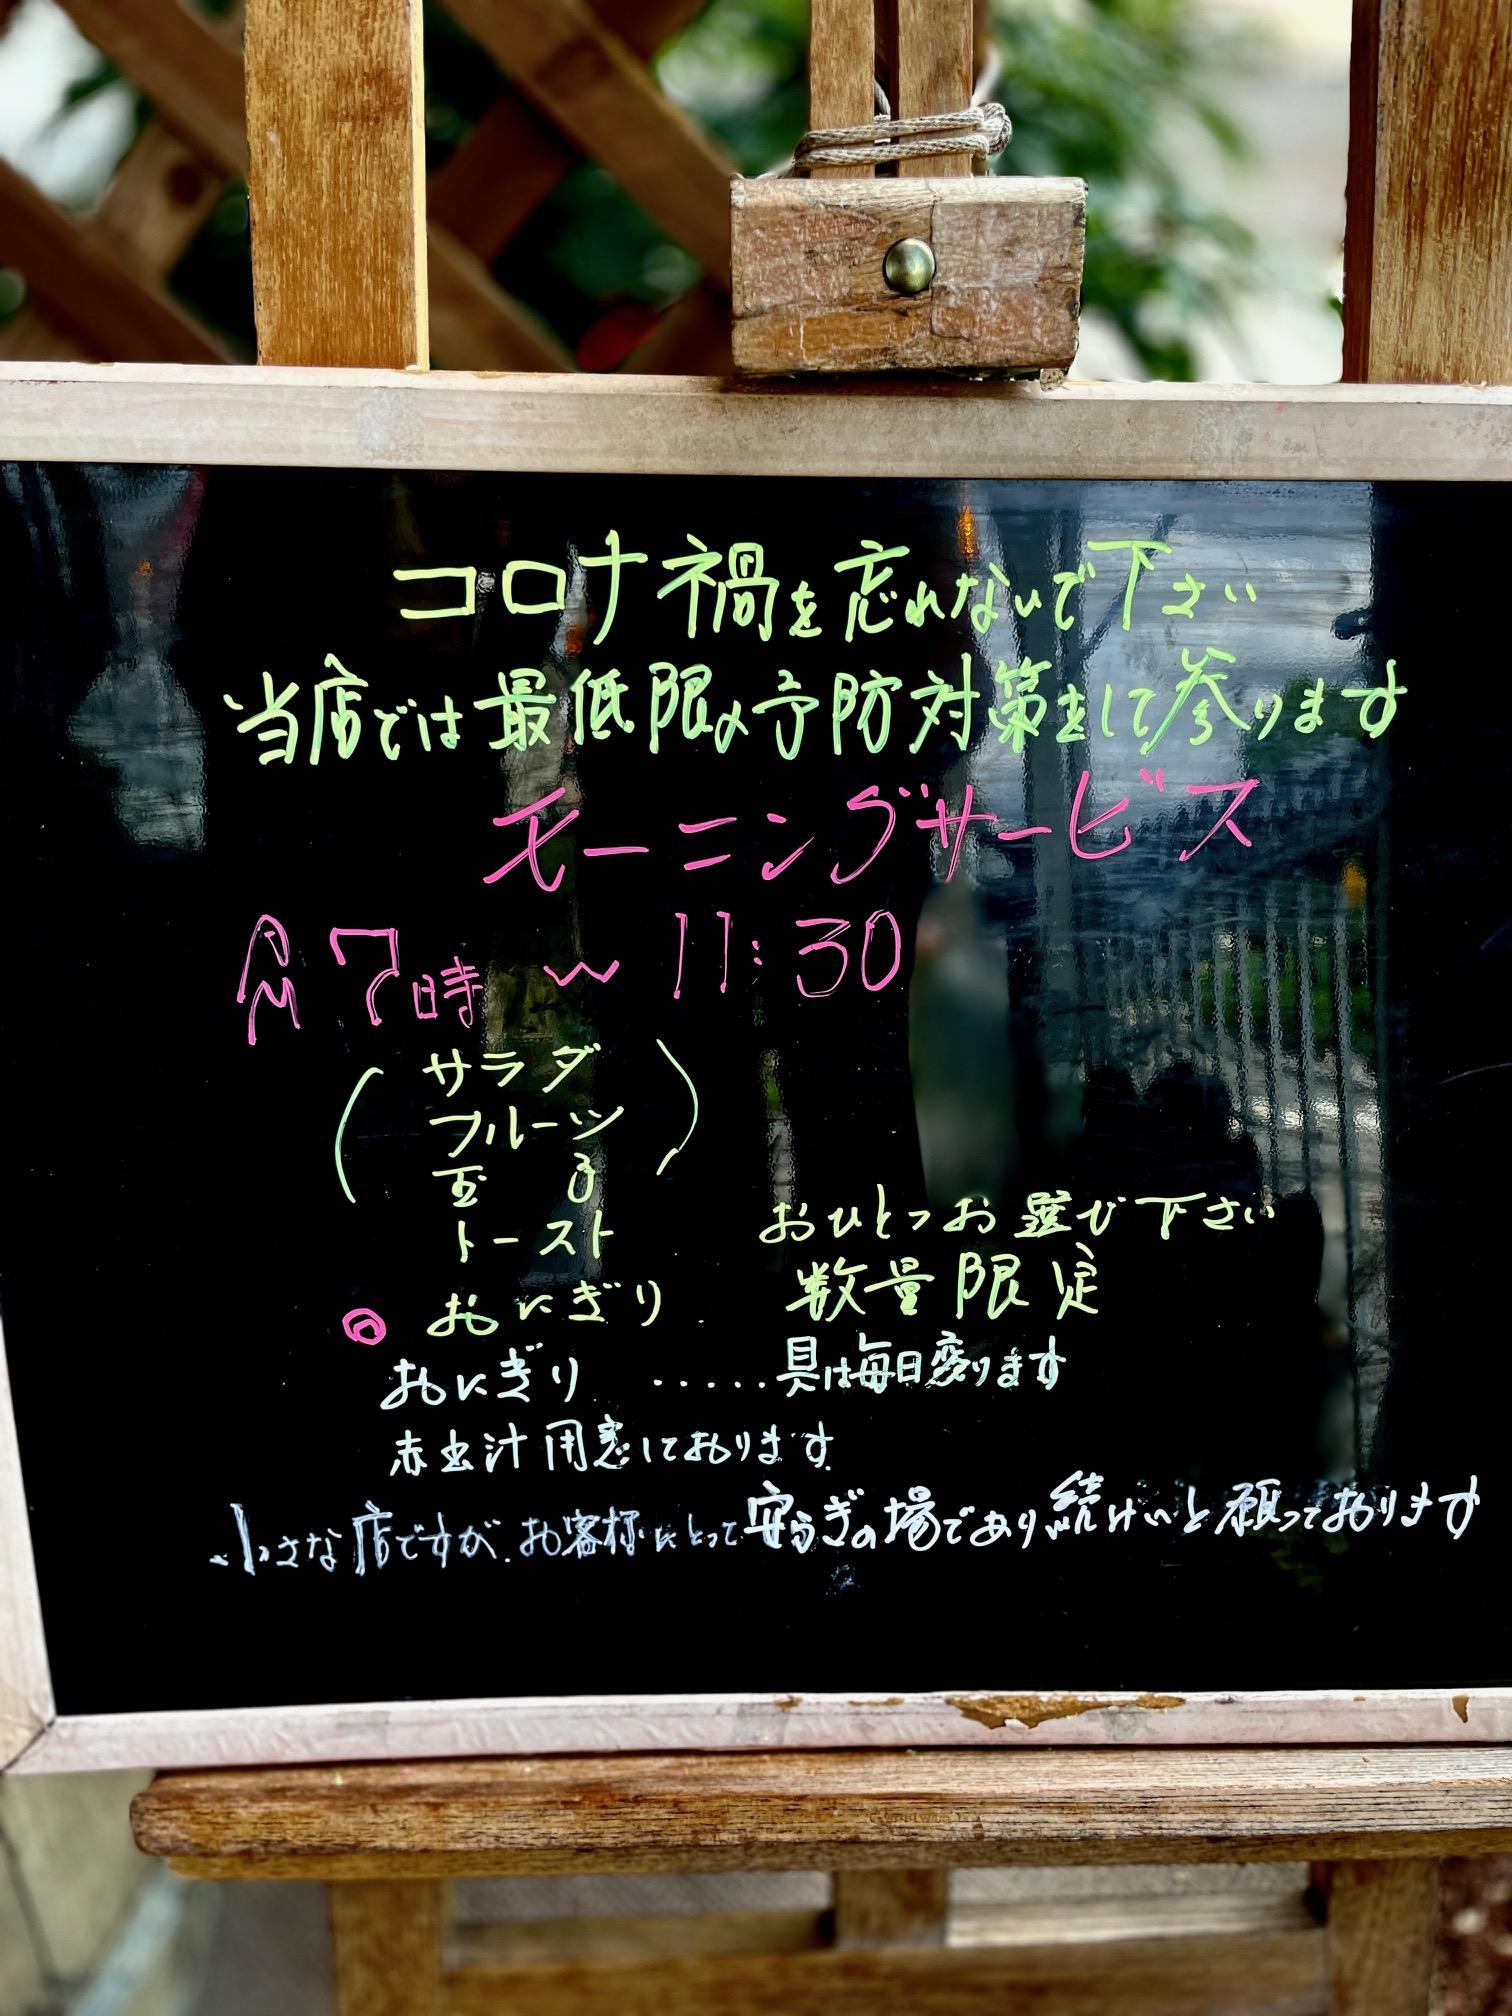 コロナ禍を忘れないで下さい
当店では最低限の予防対策をして参ります
モーニングサービス
AM 7時 〜 11:30
(サラダ
フルーツ
玉子)
トースト おひとつお選び下さい
◎ おにぎり 数量限定
おにぎり ・・・・・具は毎日変ります
赤虫汁用意しております
小さな店ですが、お客様にとって安らぎの場であり続けいと願っております